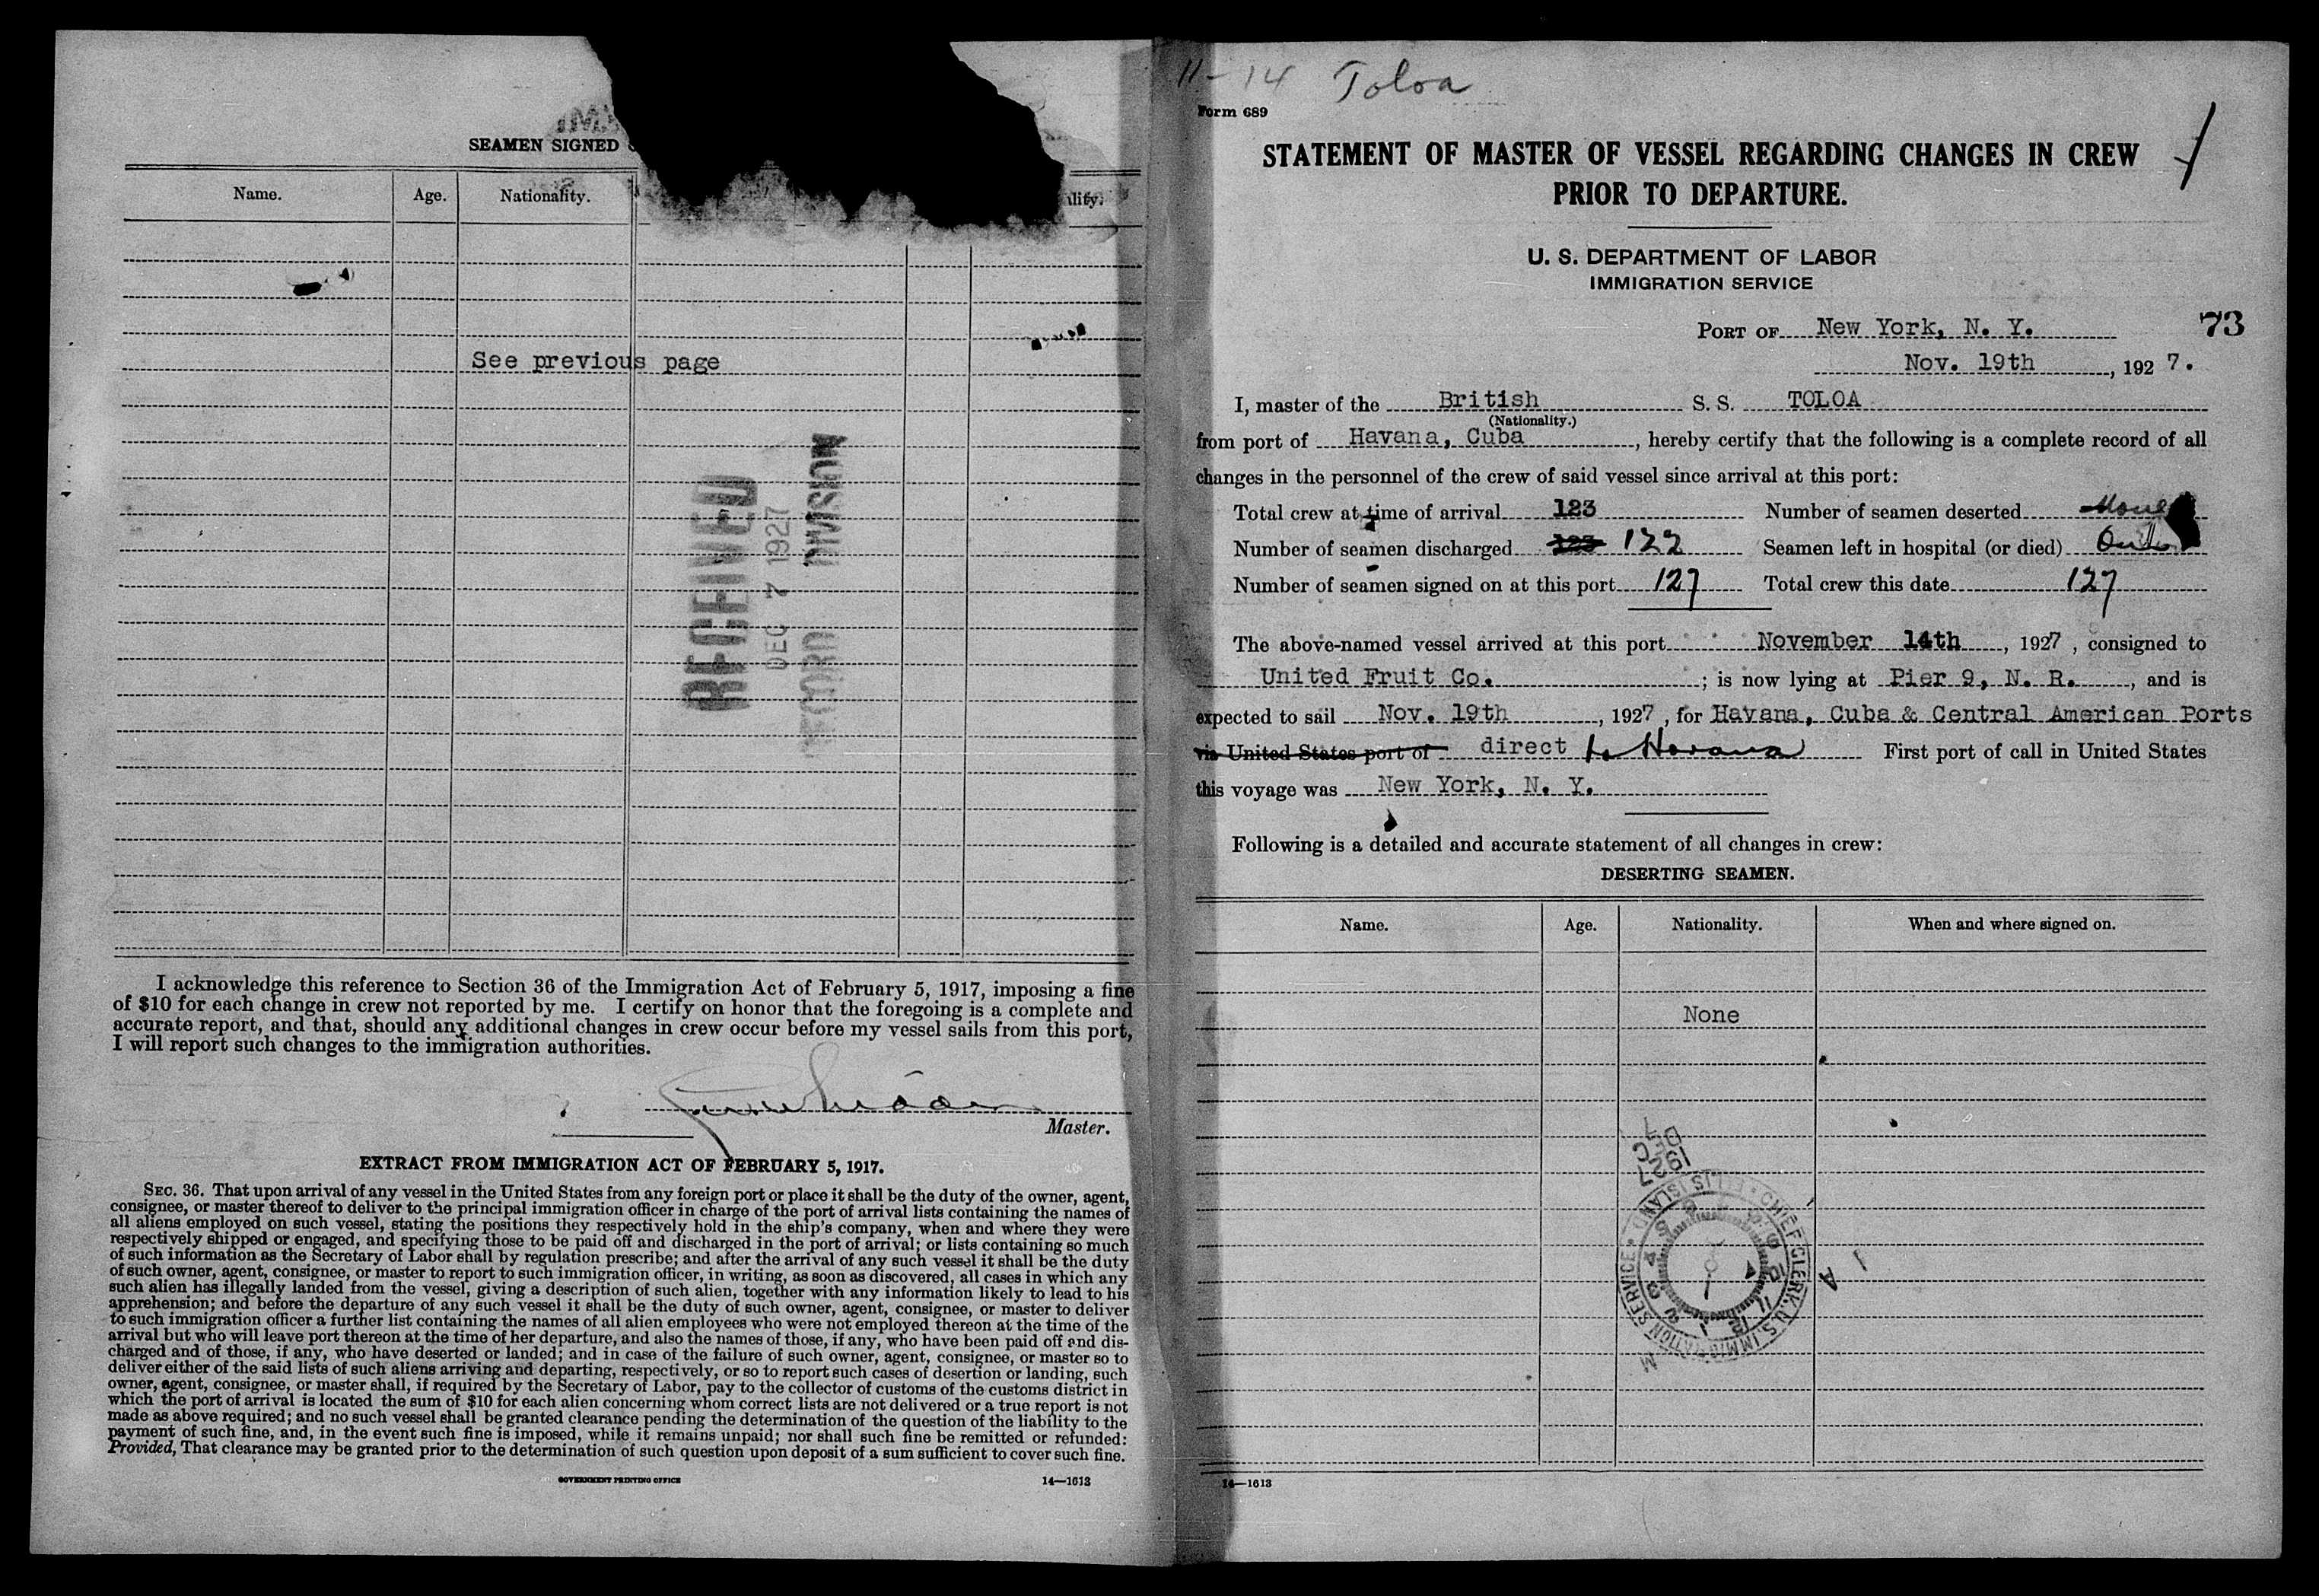 SEAMEN SIGNED
Name. Age. Nationality.
See previous page
RECEIVED
DEC 7 1927
RECORD DIVISION
I acknowledge this reference to Section 36 of the Immigration Act of February 5, 1917, imposing a fine
of $10 for each change in crew not reported by me. I certify on honor that the foregoing is a complete and
accurate report, and that, should any additional changes in crew occur before my vessel sails from this port,
I will report such changes to the immigration authorities.
Master.
EXTRACT FROM IMMIGRATION ACT OF FEBRUARY 5, 1917.
SEC. 36. That upon arrival of any vessel in the United States from any foreign port or place it shall be the duty of the owner, agent,
consignee, or master thereof to deliver to the principal immigration officer in charge of the port of arrival lists containing the names of
all aliens employed on such vessel, stating the positions they respectively hold in the ship's company, when and where they were
respectively shipped or engaged, and specifying those to be paid off and discharged in the port of arrival; or lists containing so much
of such information as the Secretary of Labor shall by regulation prescribe; and after the arrival of any such vessel it shall be the duty
of such owner, agent, consignee, or master to report to such immigration officer, in writing, as soon as discovered, all cases in which any
such alien has illegally landed from the vessel, giving a description of such alien, together with any information likely to lead to his
apprehension; and before the departure of any such vessel it shall be the duty of such owner, agent, consignee, or master to deliver
to such immigration officer a further list containing the names of all alien employees who were not employed thereon at the time of the
arrival but who will leave port thereon at the time of her departure, and also the names of those, if any, who have been paid off and dis-
charged and of those, if any, who have deserted or landed; and in case of the failure of such owner, agent, consignee, or master so to
deliver either of the said lists of such aliens arriving and departing, respectively, or so to report such cases of desertion or landing, such
owner, agent, consignee, or master shall, if required by the Secretary of Labor, pay to the collector of customs of the customs district in
which the port of arrival is located the sum of $10 for each alien concerning whom correct lists are not delivered or a true report is not
made as above required; and no such vessel shall be granted clearance pending the determination of the question of the liability to the
payment of such fine, and, in the event such fine is imposed, while it remains unpaid; nor shall such fine be remitted or refunded:
Provided, That clearance may be granted prior to the determination of such question upon deposit of a sum sufficient to cover such fine.
GOVERNMENT PRINTING OFFICE 14—1613
11-14 Toloa
Form 689
STATEMENT OF MASTER OF VESSEL REGARDING CHANGES IN CREW
PRIOR TO DEPARTURE.
U. S. DEPARTMENT OF LABOR
IMMIGRATION SERVICE
PORT OF New York, N. Y.
73
Nov. 19th, 1927.
I, master of the British S. S. TOLOA
(Nationality.)
from port of Havana, Cuba, hereby certify that the following is a complete record of all
changes in the personnel of the crew of said vessel since arrival at this port:
Total crew at time of arrival 123 Number of seamen deserted None
Number of seamen discharged 123 122 Seamen left in hospital (or died)
Number of seamen signed on at this port 127 Total crew this date 127
The above-named vessel arrived at this port November 14th, 1927, consigned to
United Fruit Co.; is now lying at Pier 9, N. R., and is
expected to sail Nov. 19th, 1927, for Havana, Cuba & Central American Ports
via United States port of direct to Havana First port of call in United States
this voyage was New York, N. Y.
Following is a detailed and accurate statement of all changes in crew:
DESERTING SEAMEN.
Name. Age. Nationality. When and where signed on.
None
1927 DEC 7
CHIEF CLERK, U.S. IMMIGRATION SERVICE • ELLIS ISLAND
14—1613